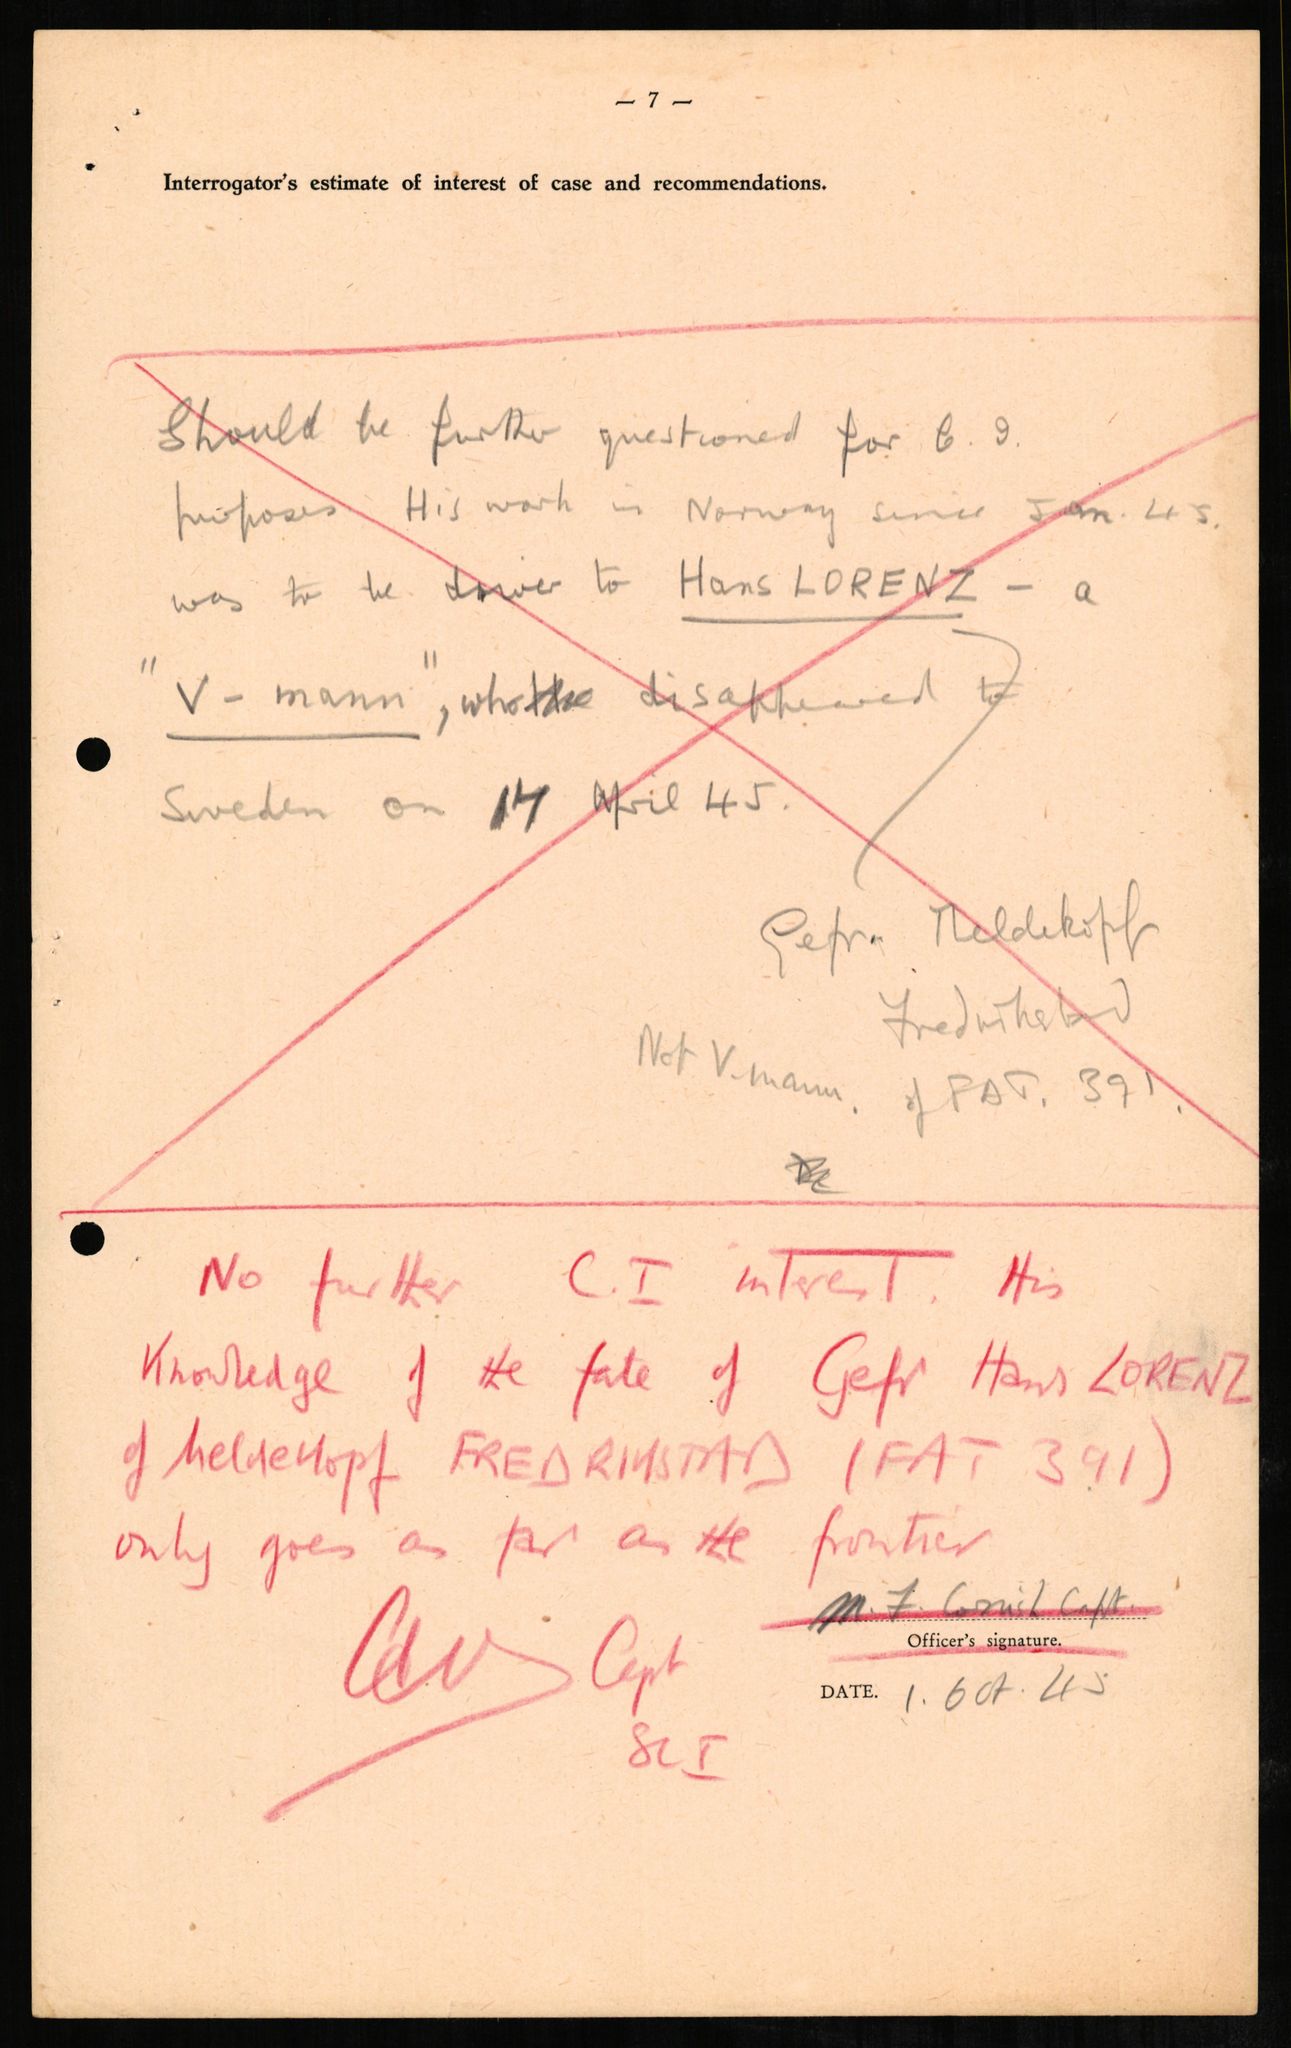 — 7 —
Interrogator's estimate of interest of case and recommendations.
Should be further questioned for C. I.
purposes. His work in Norway since Jan. 45.
was to be driver to Hans LORENZ – a
"V - mann", who disappeared to
Sweden on 17 April 45.
Gefr. Meldekopf
Fredrikstad
Not V-mann. of FAT. 391.
No further C.I interest. His
Knowledge of the fate of Gefr Hans LORENZ
of Meldekopf FREDRIKSTAD (FAT 391)
only goes as far as the frontier
M. F. Cornish Capt.
Officer's signature.
Capt
DATE. 1. Oct. 45